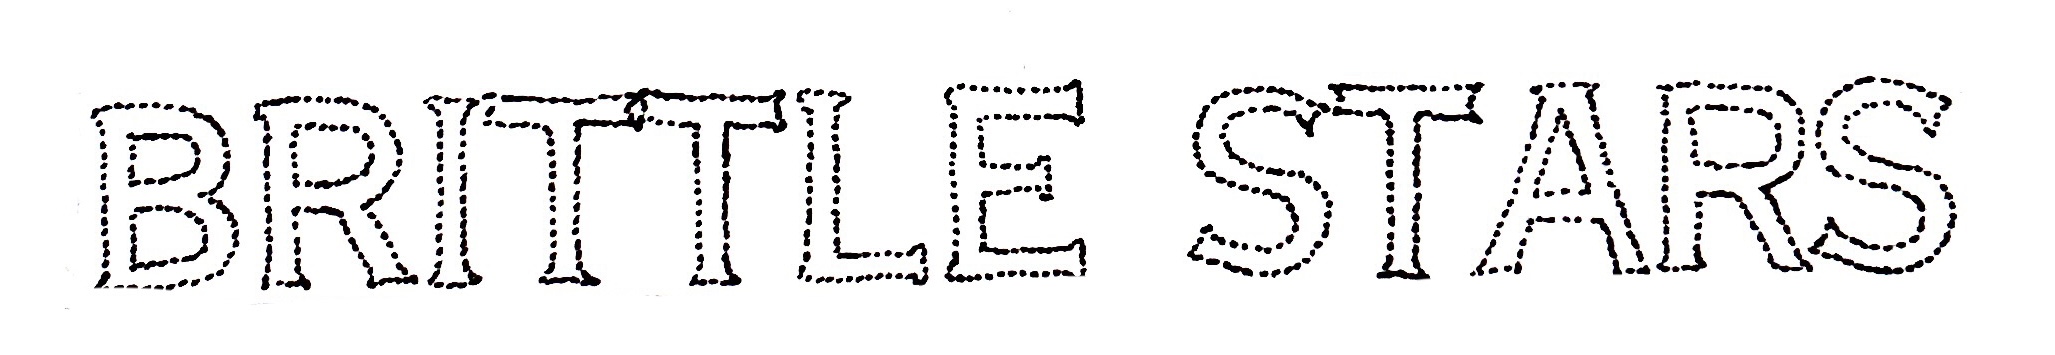 BRITTLE STARS